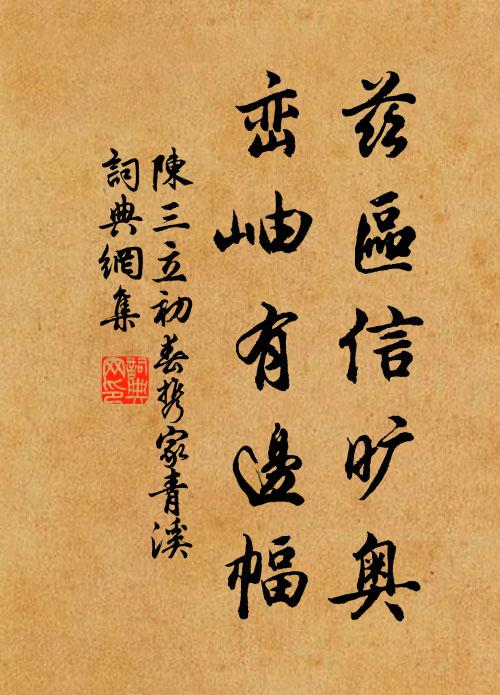 茲區信旷奥
峦岫有邊幅
陳三立初春携家青溪
詞典網集
詞典
网印